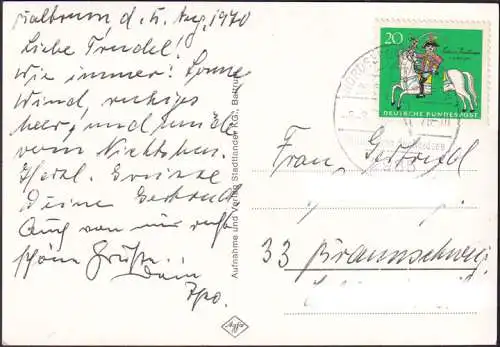 Baltrum d. 5. Aug. 1970
Liebe Trudel!
Wie immer: Sonne
Wind, ruhiges
Meer, und müde
vom Nichtstun.
Herzl. Grüsse
Deine Gertrud
Auch von mir recht
schöne Grüße.
Dein
Aufnahme und Verlag Stadtlander KG., Baltrum
Agfa
20
DEUTSCHE BUNDESPOST
NORDSEE
Frau Gertrud
33 Braunschweig